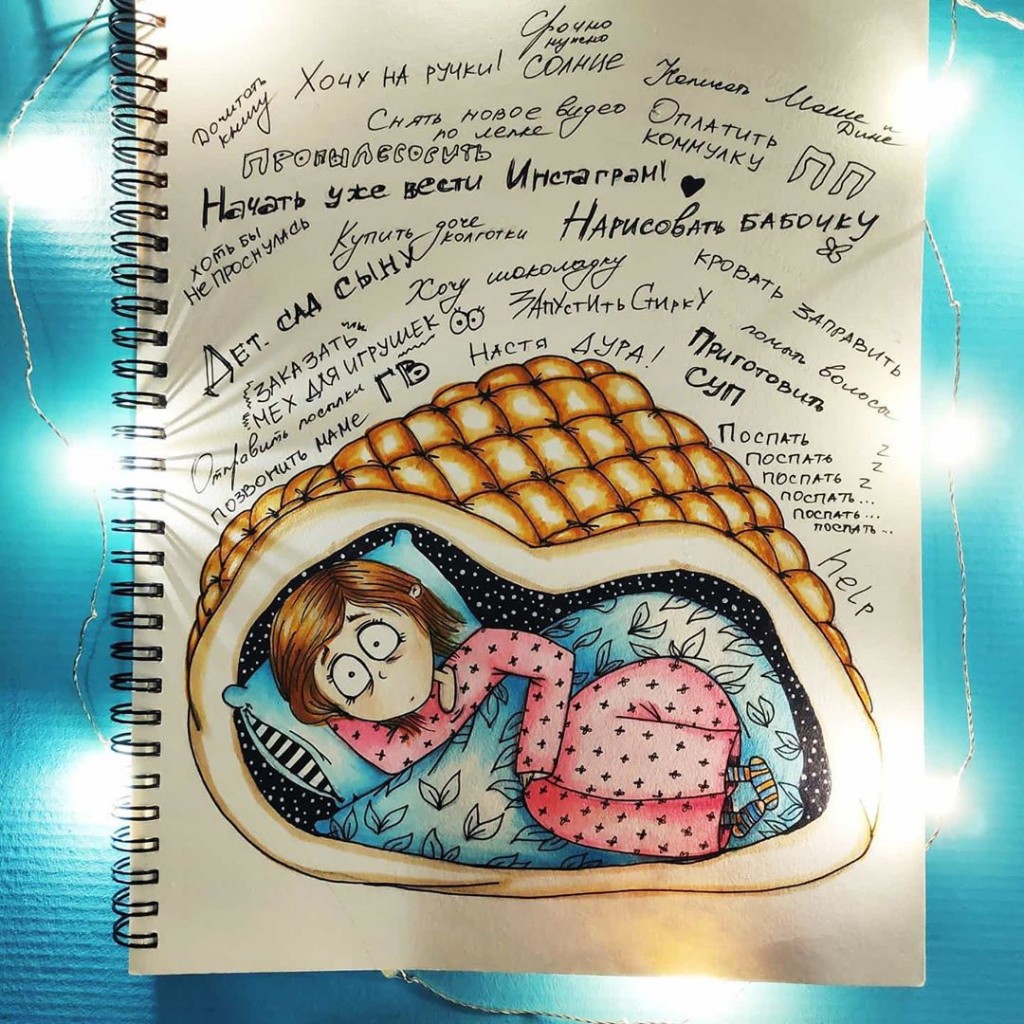 Срочно
нужно
СОЛНЦЕ
Хочу на ручки!
Дочитать
книгу
Написать Маше и
Дине
Снять новое видео
по лепке
Оплатить
коммулку
ПП
Пропылесосить
Начать уже вести Инстаграм!
Нарисовать бабочку
хоть бы
не проснулась
Купить доче
колготки
кровать заправить
Дет. сад сыну
Хочу шоколадку
Запустить Стирку
Заказать
мех для игрушек
ГВ
Настя дура!
Приготовить
суп
помыть волосы
Отправить посылки
позвонить маме
Поспать z
поспать z
поспать z
поспать...
поспать...
поспать...
help